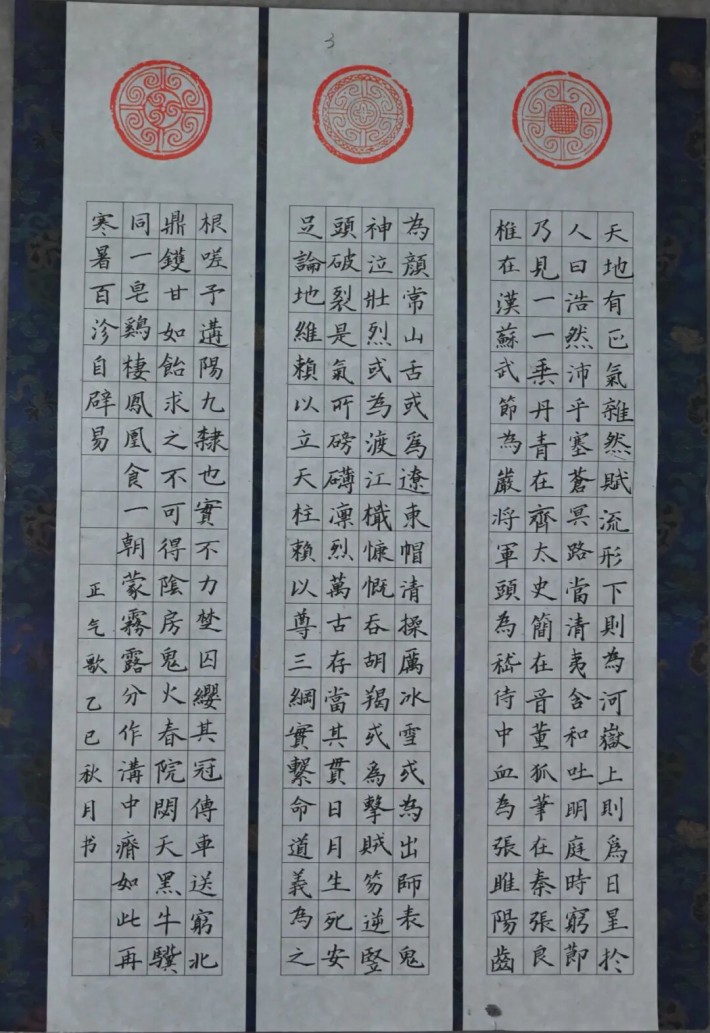 天地有正氣雜然賦流形下則為河嶽上則爲日星於
人曰浩然沛乎塞蒼冥路當清夷含和吐明庭時窮節
乃見一一垂丹青在齊太史簡在晉董狐筆在秦張良
椎在漢蘇武節為嚴將軍頭為嵇侍中血為張睢陽齒
為顏常山舌或爲遼東帽清操厲冰雪或為出師表鬼
神泣壯烈或為渡江檝慷慨吞胡羯或爲擊賊笏逆竪
頭破裂是氣所磅礴凜烈萬古存當其貫日月生死安
足論地維賴以立天柱賴以尊三綱實繫命道義為之
根嗟予遘陽九隸也實不力楚囚纓其冠傳車送窮北
鼎鑊甘如飴求之不可得陰房鬼火春院閟天黑牛驥
同一皂鷄棲鳳凰食一朝蒙霧露分作溝中瘠如此再
寒暑百沴自辟易
正气歌乙巳秋月书